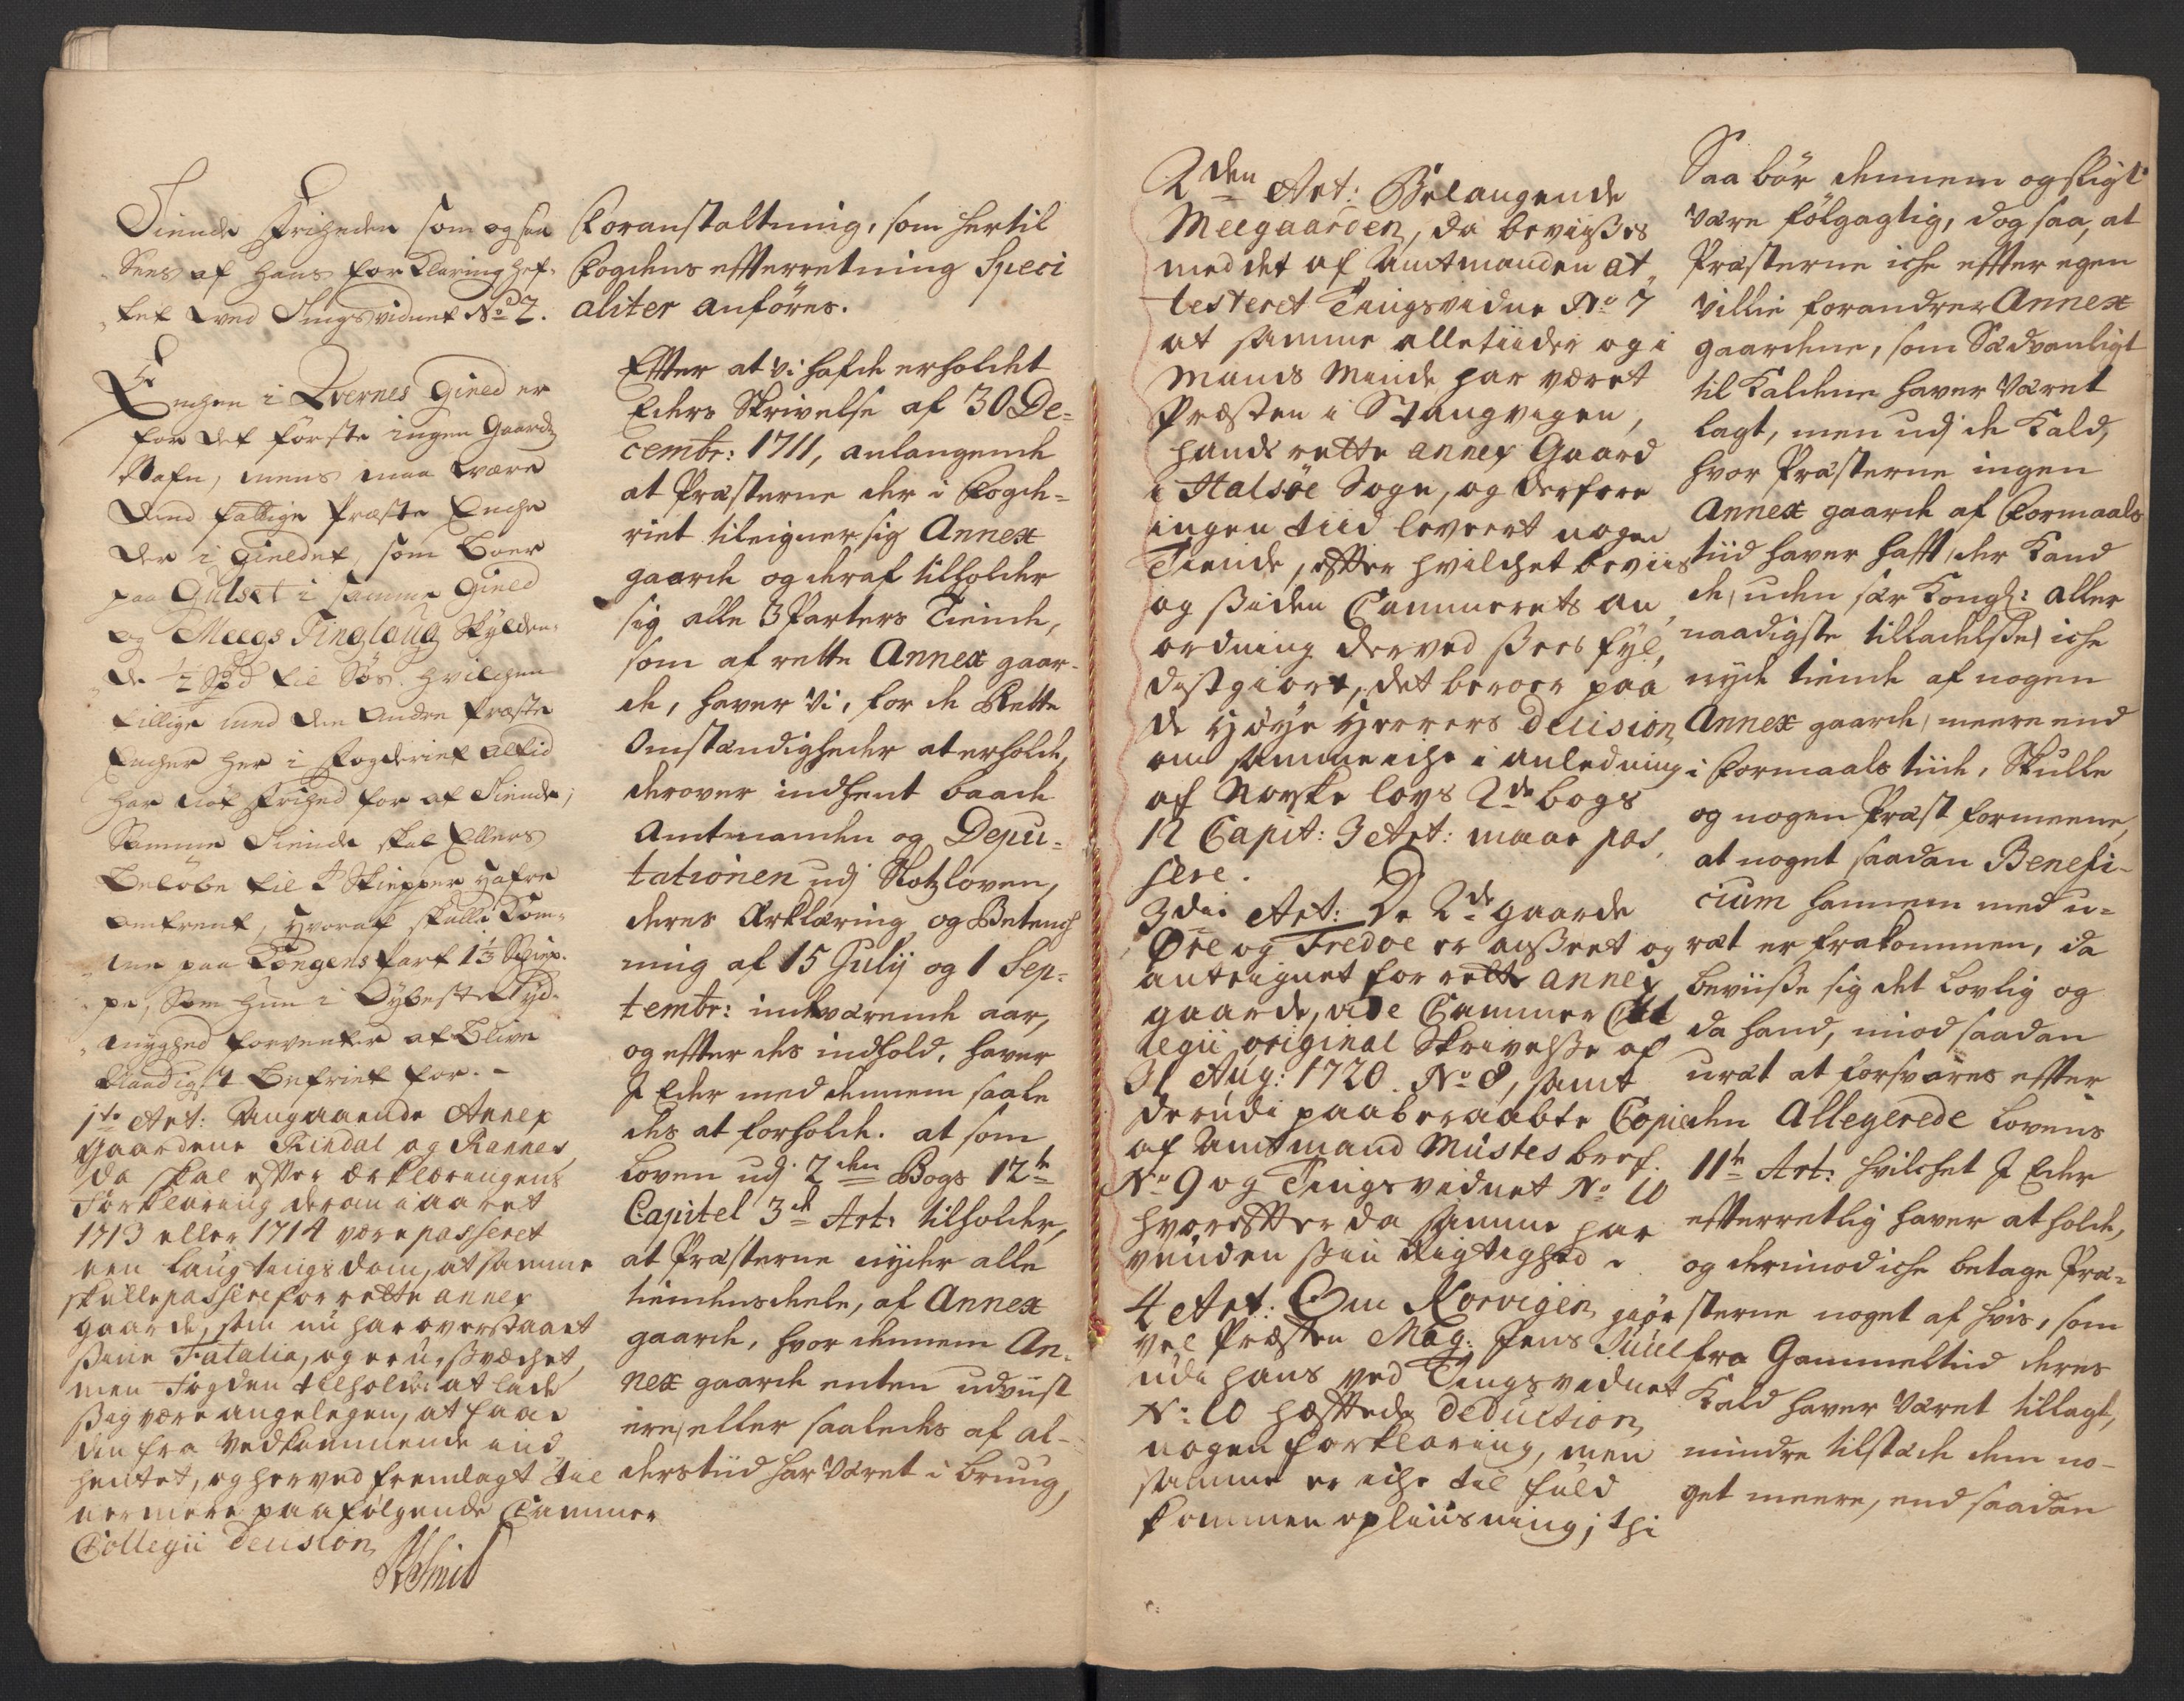 Tiende Friheden som ogsaa
Sees af hans for Klaring hef-
tet ved Tings vidnet No 2.
Enchen i Qvernes Gield er
for det förste ingen Gaardz
Nafn, mens maa være
dend fattige Præste Enche
der i Gieldet, som boer
paa Gulset i samme Gield
og Meegs Tinglaug Skylden-
de 1/2 Spd til Søs. hvilchen
tillige med den andre Præste
Encher her i fogderiet altid
har nöt frihed for at Tiende,
Samme Tiende skal Ellers
Belöbe til 4 Skiepper hafre
omtrent, hvoraf skulle Kom-
me paa Kongens Part 1 1/3 Skiep-
pe, Som hun i Dybeste Ayd-
myghed forventer at Blive
Naadigst Befriet for. -
1te Art: Angaaende Annex
Gaardene Rindal og Rannes
da skal efter ærklæringens
Forklaring derom i aaret
1713 eller 1714 være passeret
een laugtings dom, at samme
skulle passere for rette annex
gaarde, som nu har overstaaet
sine Fatalia, og er u-svæchet,
men Fogden tilholdes at lade
sig være angelegen, at faae
den fra Vedkommende ind
hentet, og herved fremlagt til
nermere paafølgende Cammer
Collegii Decision
Foranstaltning, som hertil
Fogdens efterretning Speci
aliter anföres.
Efter at vi hafde erholdet
Eders Skrivelse af 30 De-
cembr: 1711, anlangende
at Præsterne der i Fogde-
riet tileigner sig Annex
gaarde og deraf tilholder
sig alle 3 Parters Tiende,
som af rette Annex gaar-
de, haver Vi, for de Rette
Omstændigheder at erholde,
derover indhent baade
Amtmanden og Depu-
tationen udj Slotzloven,
deres Ærklæring og Betench
ning af 15 Julij og 1 Sep-
tembr: indeværende aar,
og efter des indhold, haver
I Eder med dennem saale
des at forholde. at som
Loven udj 2den Bogs 12te
Capitel 3de Art: tilholder,
at Præsterne nyder alle
tiendens deele, af Annex
gaarde, hvor dennem An-
nex gaarde enten udviist
ere, eller saaledes af al-
derstiid har været i brug,
2den Art: Belangende
Meegaarden, da bevises
med det af Amtmanden at
testeret Tingsvidne No 7
at samme alletiider og i
Mands Minde har været
Præsten i Stangvigen,
hands rette annex Gaard
i Halsøe Sogn, og derfore
ingen tiid leveert nogen
Tiende, efter hvilchet beviis
og siden Cammerets an
ordning derved sees fyl,
distgiort, det beroer paa
de Høye Herrers Decision
om samme iche i anledning
af Norske lovs 2de bogs
12 Capit: 3 Art: maae pas,
sere.
3die Art: De 2de gaarde
Øre og Fredøe er ansßeet og
anteignet for rette annex
gaarde, vide Cammer Col
legii original Skrivelse af
31 Aug: 1720. No 8, samt
derudi paaberaabte Copie
af Amtmand Mustes bref.
No 9 og Tingsvidnet No 10
hvorefter da samme har
venden sin Rigtighed.
4 Art: Om Korvigen giör
vel Præsten Mag: Jens Juul
udi hans ved Tingsvidnet
No 10 hæftede Deduction,
nogen forklaring, men
samme er iche til fuld
kommen opliusning; thi
Saa bör dennem og sligt
være fölgagtig, dog saa, at
Præsterne iche efter egen
villie forandrer Annex
gaardene, som Sædvanligt
til Kaldene haver været
lagt, men udj de Kald,
hvor Præsterne ingen
Annex gaarde af Formaals
tiid haver haft, der Kand
de, uden sær Kongl: aller
naadigste tilladelse, iche
nyde tiende af nogen
Annex gaarde, meere end
i Formaals tiide, Skulle
og nogen Præst formeene,
at noget saadan Benefi-
cium hannem med u-
ræt er frakommen, da
beviisse sig det Lovlig og
da hand, mod saadan
uræt at forsvares efter
den Allegerede Lovens
11te Art: hvilchet I Eder
efterretlig haver at holde,
og derimod iche betage Præ-
sterne noget af hvis, som
fra Gammeltiid deres
Kald haver været tillagt,
mindre tilstæde dem no-
get meere, end saadan